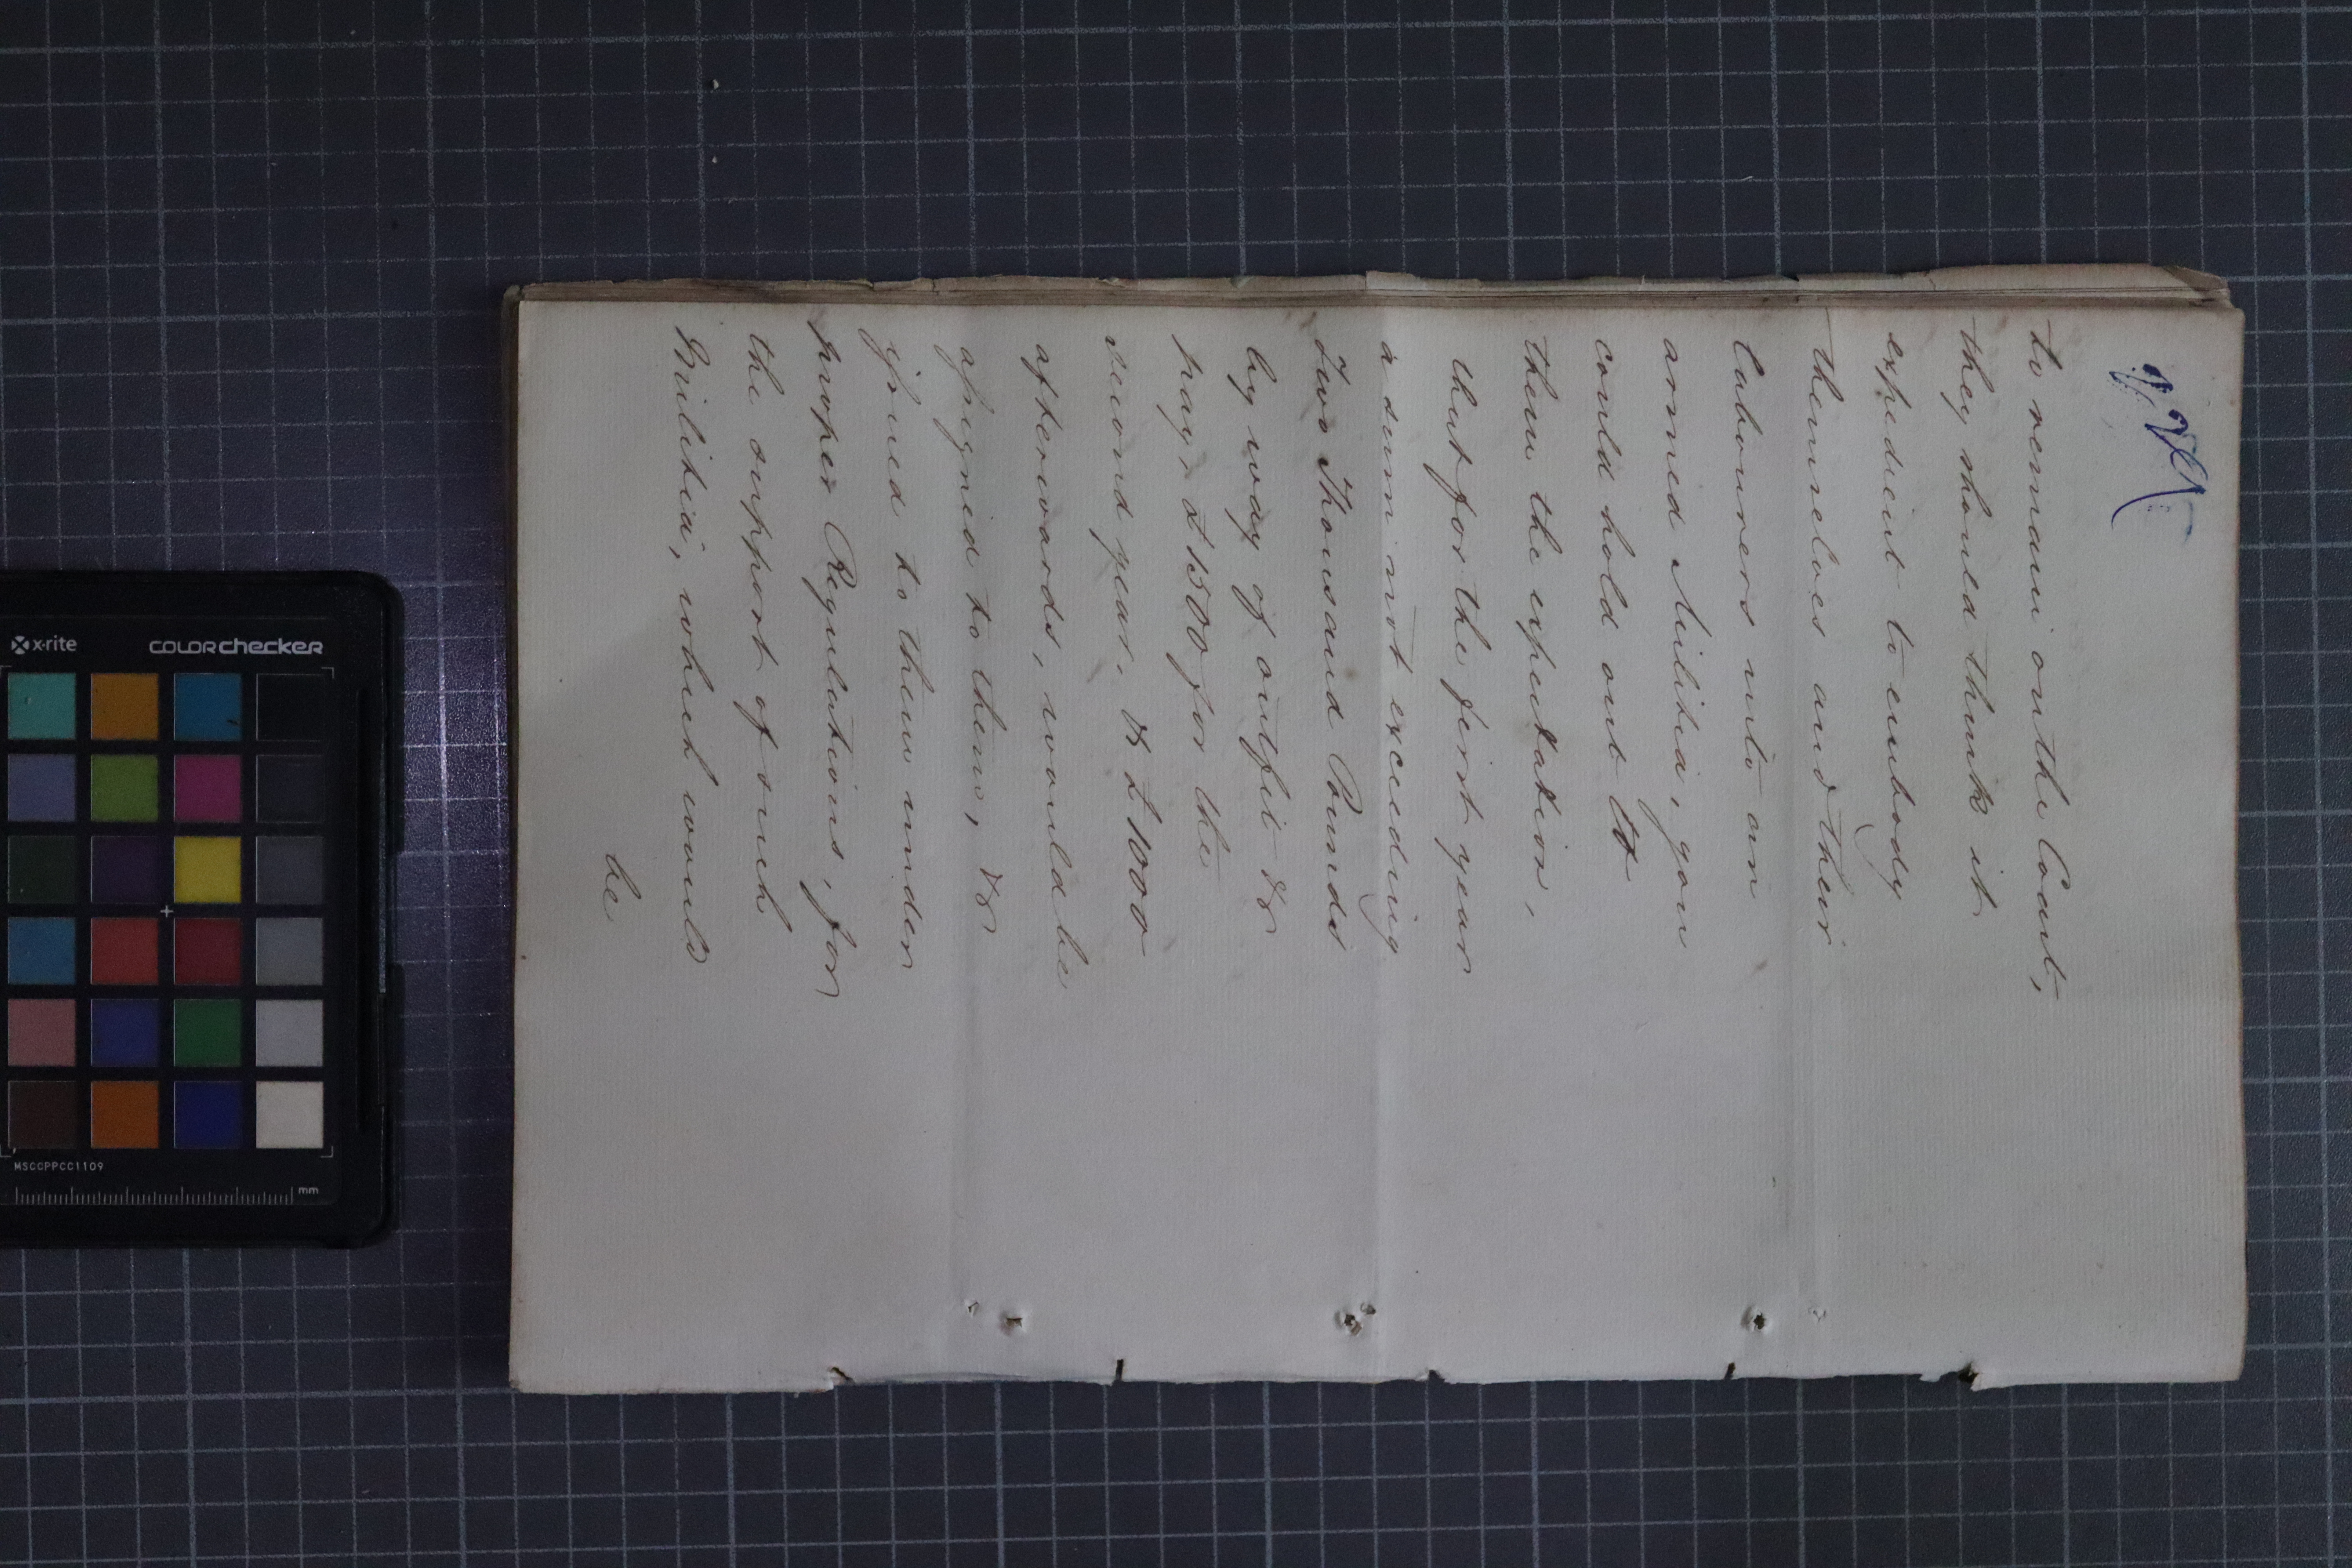 to remain on the Coast,
they should think it
expedient to embody
themselves and their
labourers into an
armed Militia, you
could hold out to
them the expectation,
that for the first year
a sum not exceeding
Two Thousand Pounds
by way of outfit &
pay, £1500 for the
second year, & £1000
afterwards, would be
assigned to them, &
issued to them under
proper Regulations, for
the support of such
Militia; which would
be
x-rite colorchecker
MSCCPPCC1109
mm